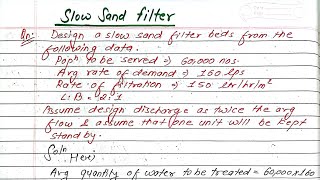 Slow Sand filter
Qn: Design a slow sand filter beds from the
following data.
Popn to be served => 60,000 nos.
Avg rate of demand => 160 lps
Rate of filtration => 150 ltr/hr/m²
L:B = 2:1
Assume design discharge as twice the avg
flow & assume that one unit will be kept
stand by.
Soln
Here,
Avg quantity of water to be treated = 60,000x160